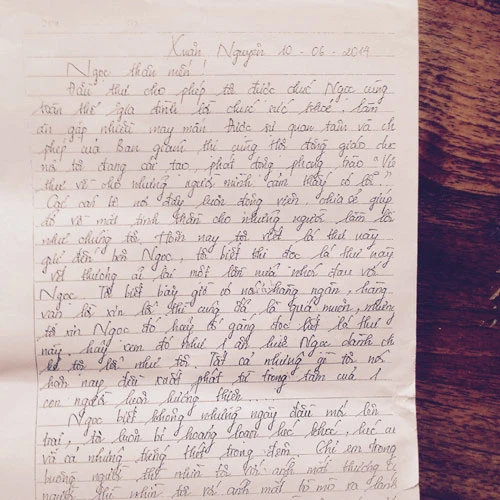 Xuân Nguyên 10 - 06 - 2019
Ngọc thân mến !
Đầu thư cho phép tớ được chúc Ngọc cùng
toàn thể gia đình lời chúc sức khoẻ làm
ăn gặp nhiều may mắn. Được sự quan tâm và ch
phép của Ban giám thị cùng Hội đồng giáo dục
nơi tớ đang cải tạo, phát động phong trào "Viết
thư về cho những người mình cảm thấy có lỗi".
Các cán bộ nơi đây luôn động viên, chia sẻ giúp
đỡ về mặt tinh thần cho những người lầm lỗi
như chúng tớ. Hôm nay tớ viết lá thư này
gửi đến bên Ngọc, tớ biết thì đọc lá thư này
vết thương ai lại một lần nữa nhói đau với
Ngọc. Tớ biết bây giờ có nói hàng ngàn, hàng
vạn lời xin lỗi thì cũng đã là quá muộn, nhưng
tớ xin Ngọc đó hãy cố gắng đọc hết lá thư
này, hãy xem đó như 1 ân huệ Ngọc dành ch
kẻ tội lỗi như tớ. Tất cả những gì tớ nói
hôm nay đều xuất phát từ trong tâm của 1
con người luôn hướng thiện...
Ngọc biết không những ngày đầu mới lên
trại, tớ luôn bị hoảng loạn lúc khóc, lúc cư
và cả những tiếng thét trong đêm. Chị em trong
buồng người thì nhìn tớ với ánh mắt thương cả
người thì nhìn tớ với ánh mắt tò mò ra lạnh